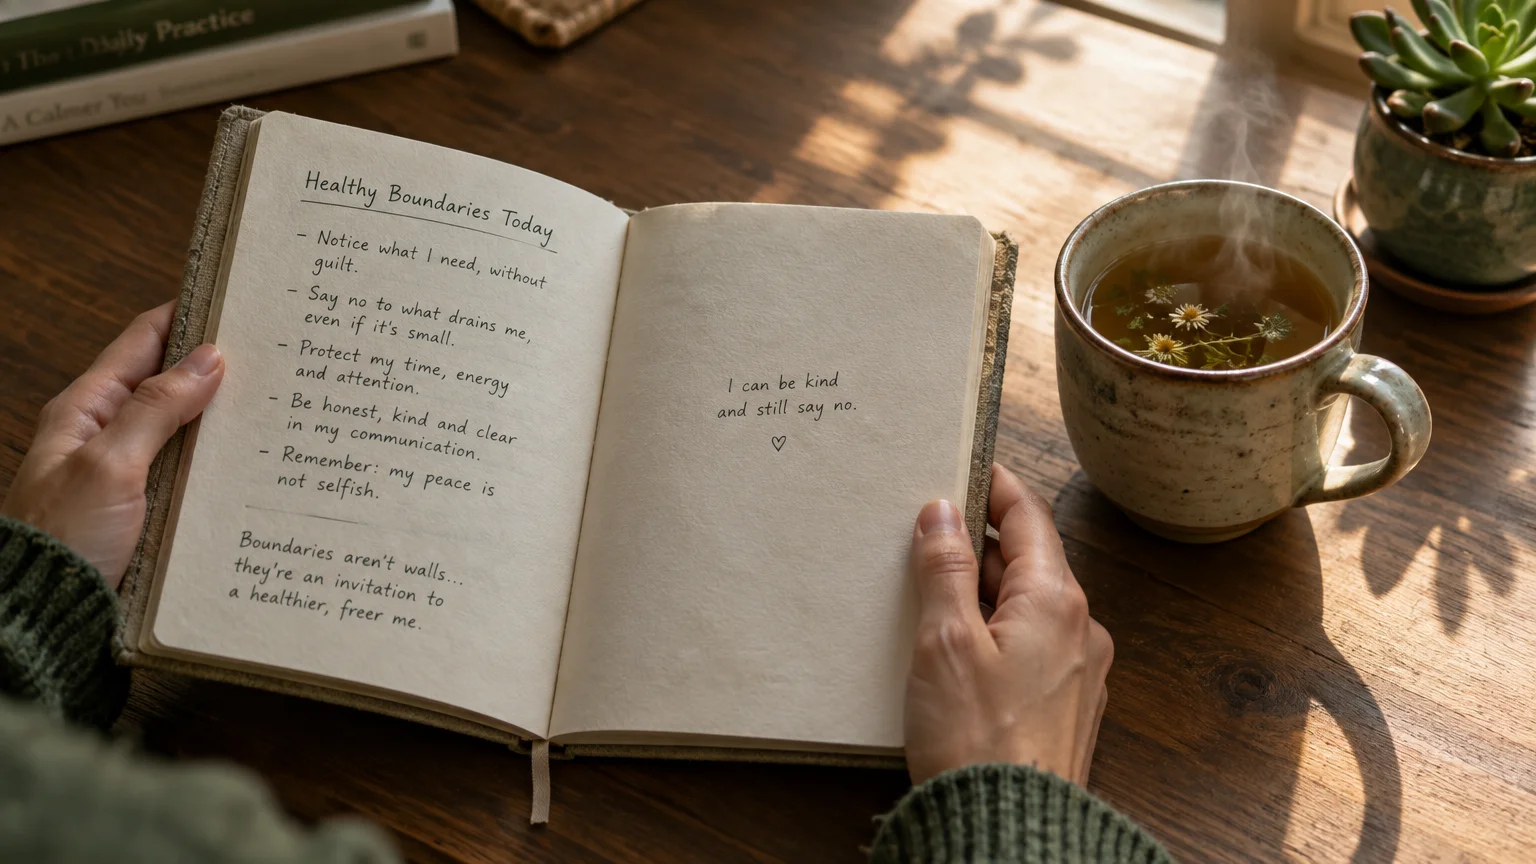 The Daily Practice
A Calmer You
Healthy Boundaries Today
- Notice what I need, without
guilt.
- Say no to what drains me,
even if it's small.
- Protect my time, energy
and attention.
- Be honest, kind and clear
in my communication.
- Remember: my peace is
not selfish.
Boundaries aren't walls...
they're an invitation to
a healthier, freer me.
I can be kind
and still say no.
♡